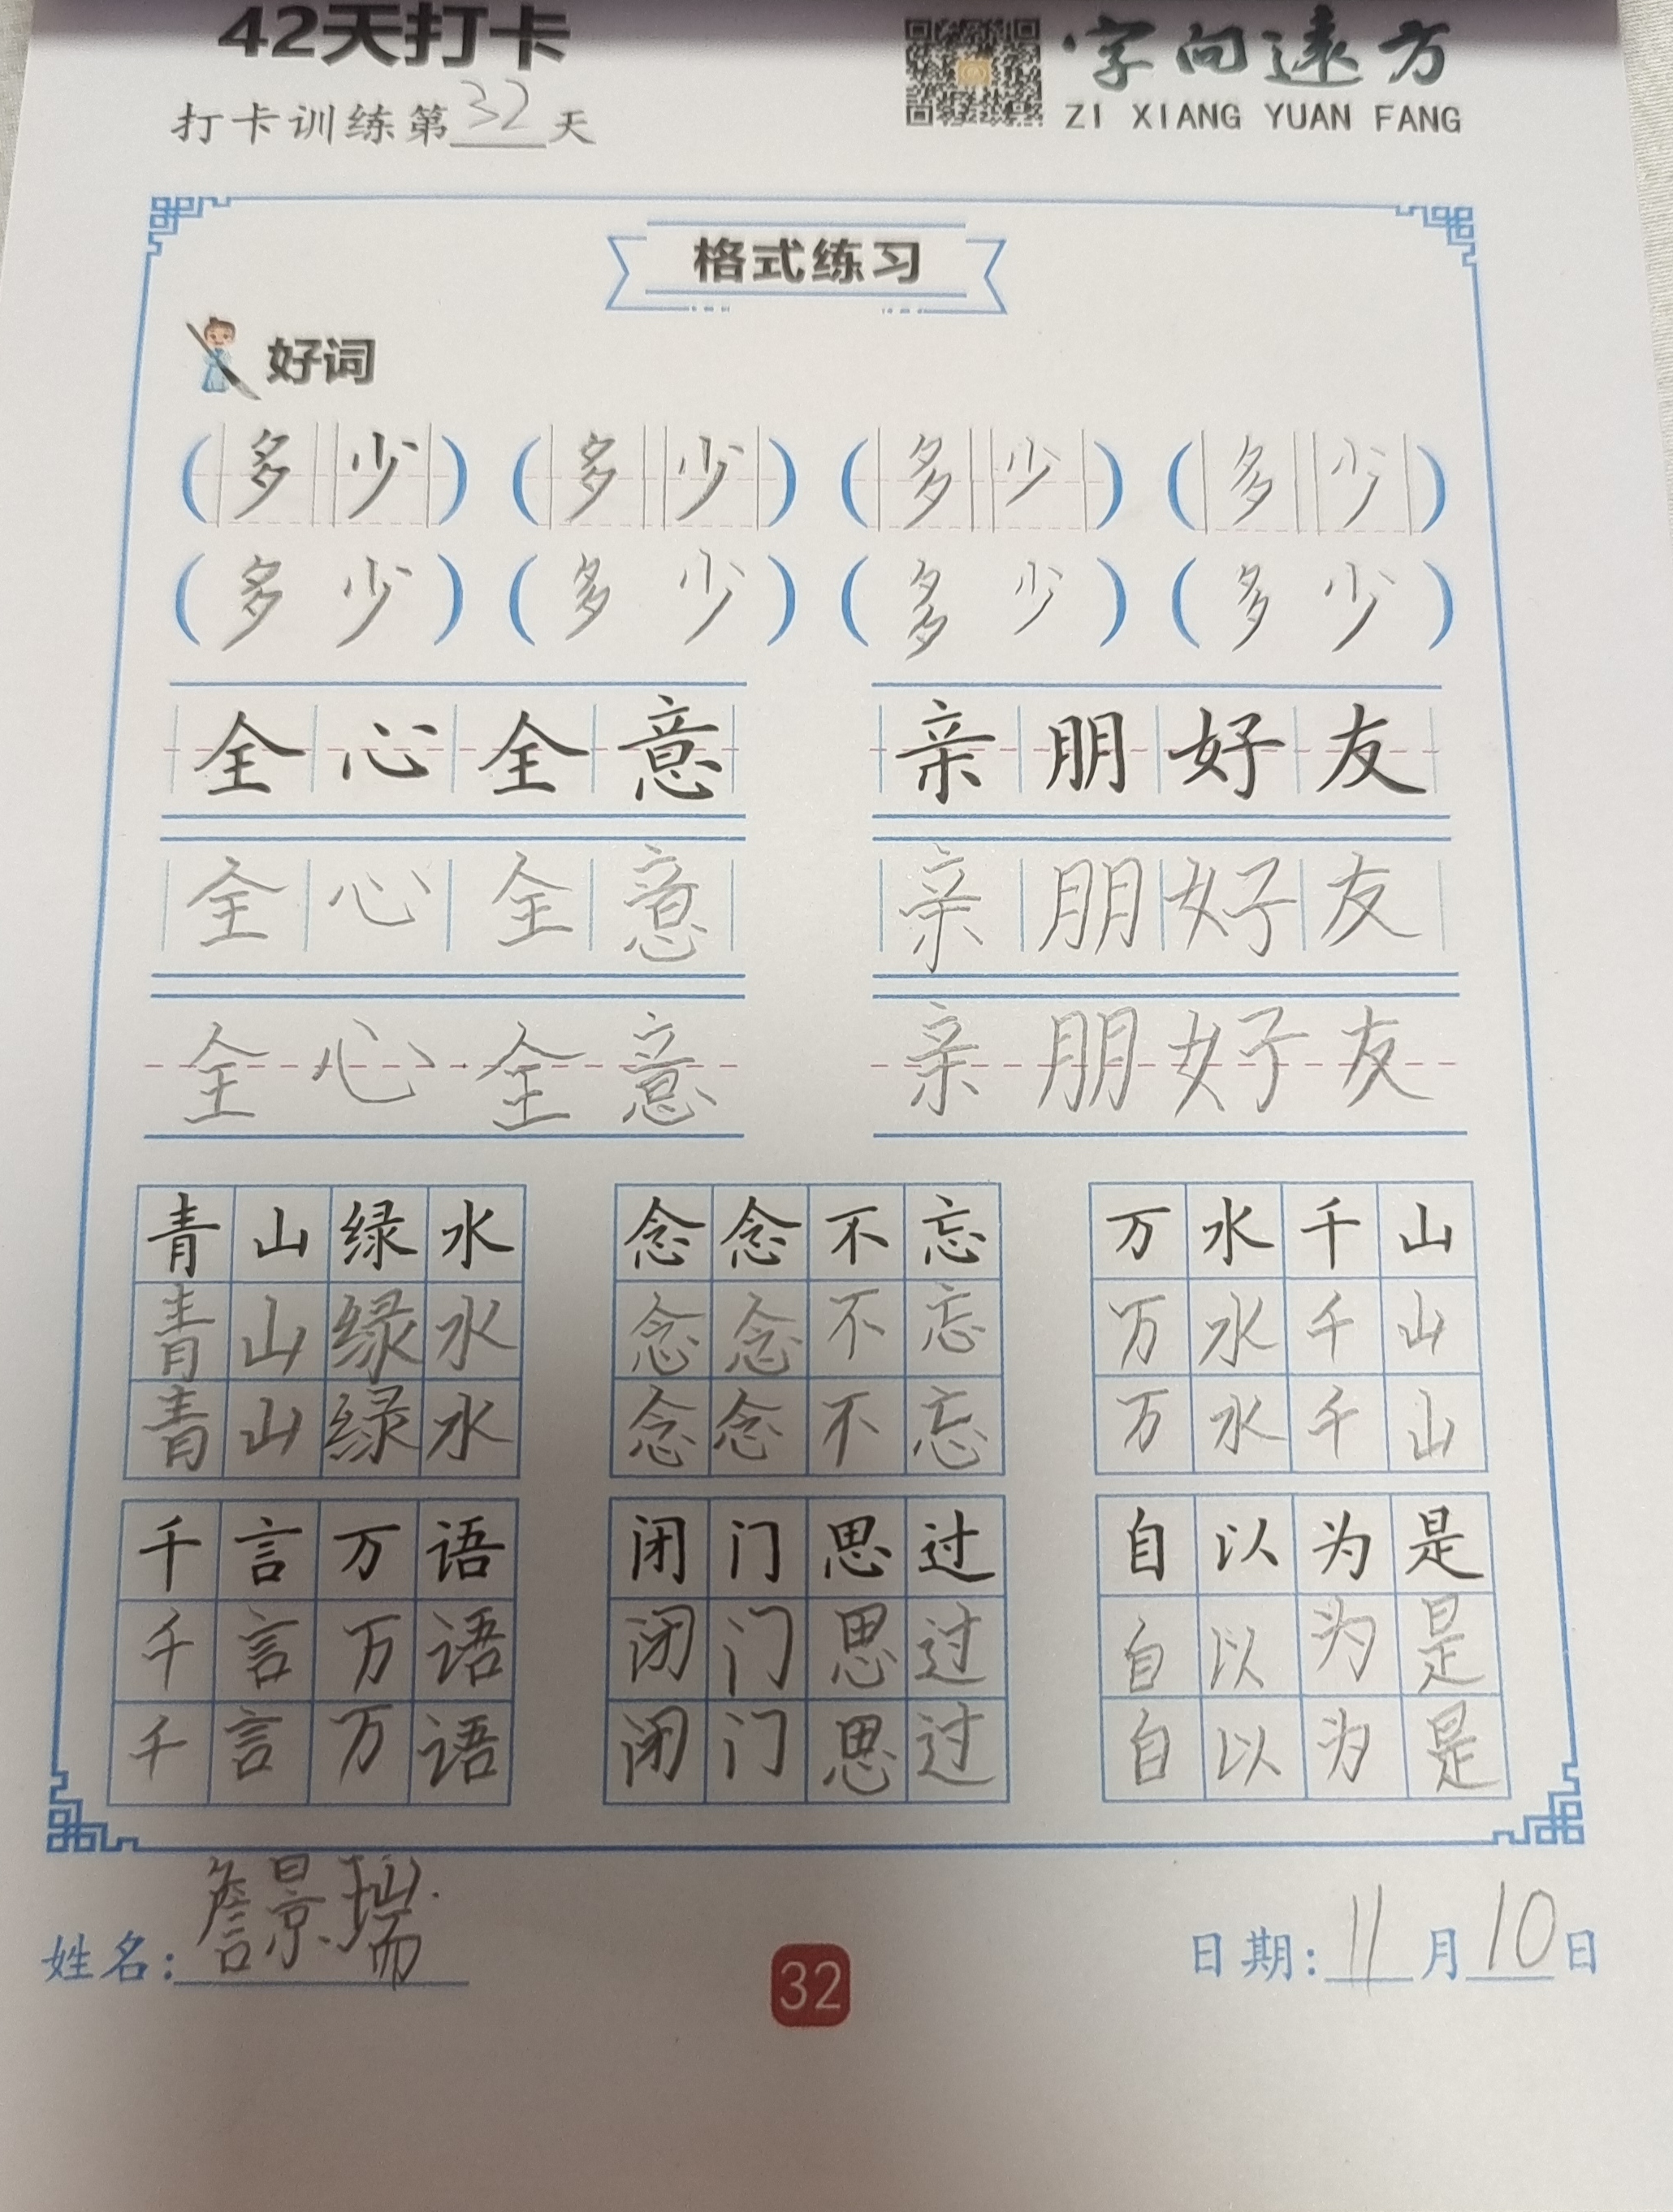 42天打卡
打卡训练第32天
字向远方
ZI XIANG YUAN FANG
格式练习
好词
(多少) (多少) (多少) (多少)
(多少) (多少) (多少) (多少)
全心全意 亲朋好友
全心全意 亲朋好友
全心全意 亲朋好友
青山绿水 念念不忘 万水千山
青山绿水 念念不忘 万水千山
青山绿水 念念不忘 万水千山
千言万语 闭门思过 自以为是
千言万语 闭门思过 自以为是
千言万语 闭门思过 自以为是
姓名:詹景瑞 32 日期:11月10日